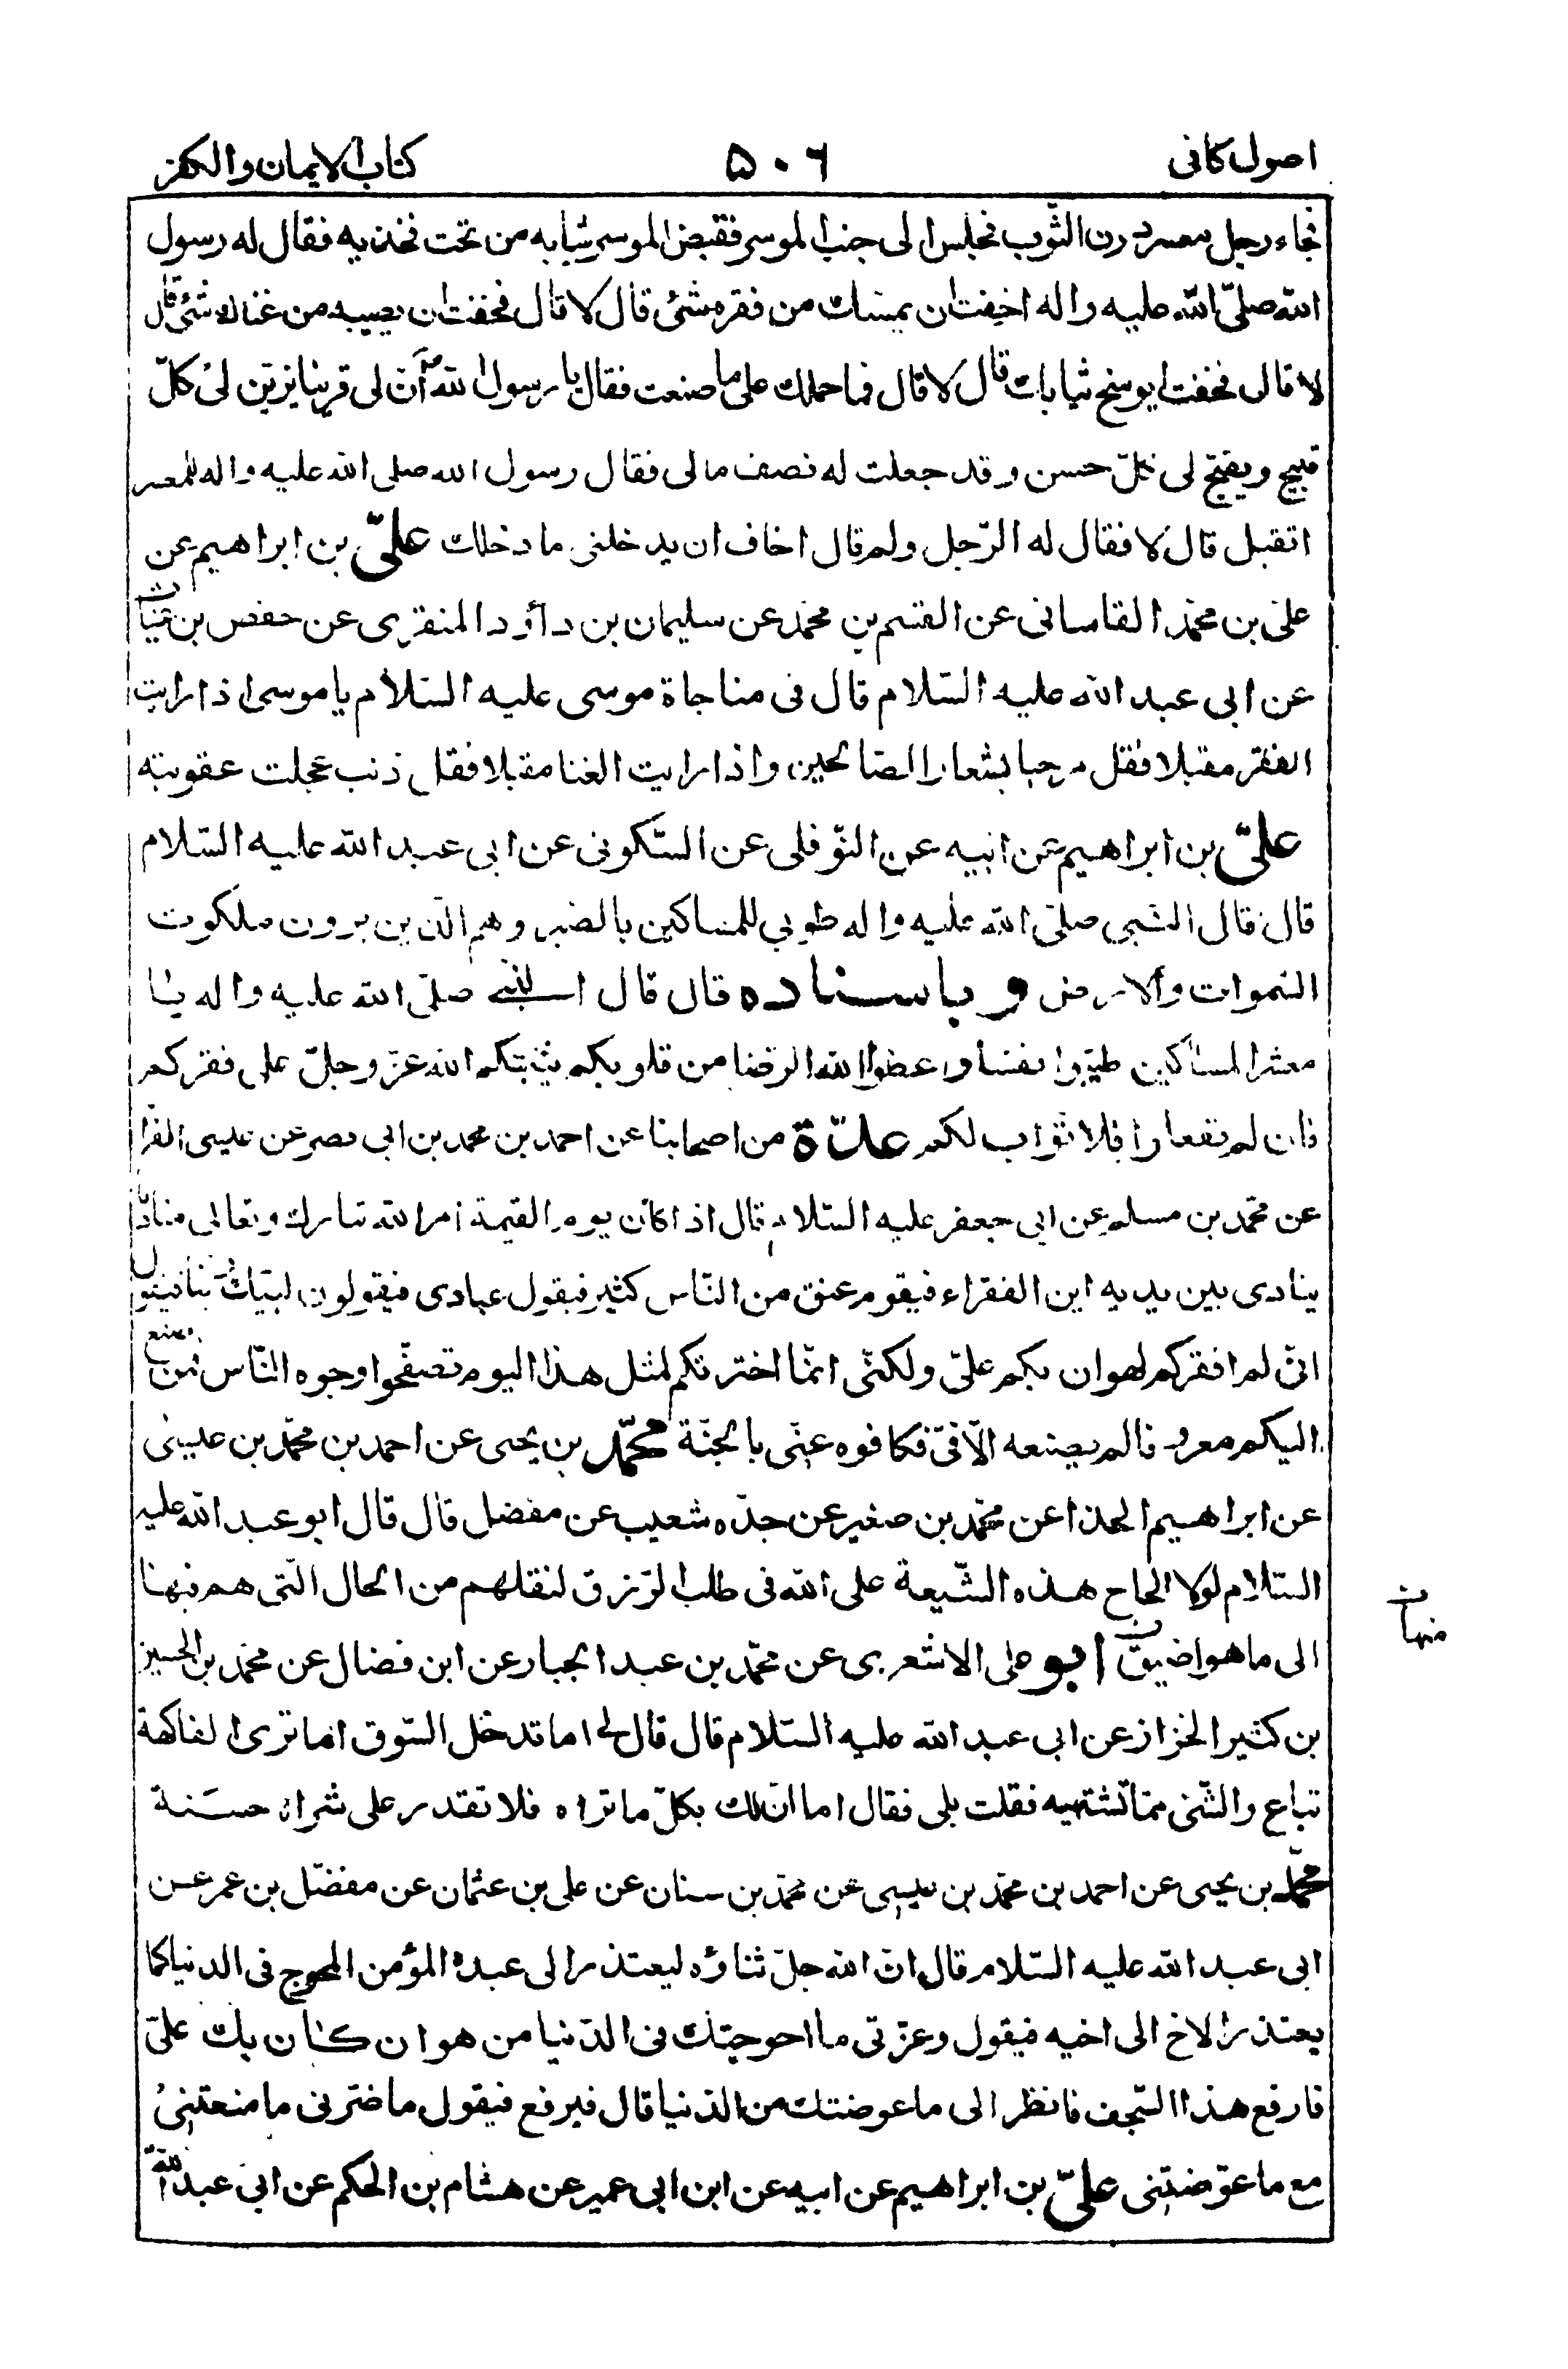 اصول کافی ۵۰۶ کتاب الایمان والکفر
فجاء رجل معسر درن الثّوب فجلس الی جنب الموسر فقبض الموسر ثیابه من تحت فخذیه فقال له رسول
اللّه صلّی اللّه علیه واله اخفت ان یمسّک من فقره شیٔ قال لا قال فخفت ان یصیبه من غناک شیٔ قال
لا قال فخفت ان یوسخ ثیابک قال لا قال فما حملک علی ما صنعت فقال یا رسول اللّه ص انّ لی قرینا یزیّن لی کلّ
قبیح ویقبّح لی کلّ حسن وقد جعلت له نصف مالی فقال رسول اللّه صلی اللّه علیه واله للمعسر
اتقبل قال لا فقال له الرّجل ولم قال اخاف ان یدخلنی ما دخلک علیّ بن ابراهیم عن
علی بن محمّد القاسانی عن القسم بن محمّد عن سلیمان بن داؤد المنقری عن حفص بن غیاث
عن ابی عبد اللّه علیه السّلام قال فی مناجاة موسی علیه السّلام یا موسی اذا رایت
الفقر مقبلا فقل مرحبا بشعار الصّالحین واذا رایت الغنا مقبلا فقل ذنب عجلت عقوبته
علیّ بن ابراهیم عن ابیه عن النّوفلی عن السّکونی عن ابی عبد اللّه علیه السّلام
قال قال النّبی صلّی اللّه علیه واله طوبی للمساکین بالصّبر وهم الّذین یرون ملکوت
السّموات والارض وباسناده قال قال النّبی صلّی اللّه علیه واله یا
معشر المساکین طیّبوا نفسا واعطوا اللّه الرّضا من قلوبکم یثبتکم اللّه عزّ وجلّ علی فقرکم
فان لم تفعلوا فلا ثواب لکم عدّة من اصحابنا عن احمد بن محمد بن ابی نصر عن عیسی الفرّا
عن محمّد بن مسلم عن ابی جعفر علیه السّلام قال اذا کان یوم القیمة امر اللّه تبارک وتعالی منادیا
ینادی بین یدیه این الفقراء فیقوم عنق من النّاس کثیر فیقول عبادی فیقولون لبّیک ربّنا فیقول
انّی لم افقرکم لهوان بکم علیّ ولکنّی انّما اخترتکم لمثل هذا الیوم تصفّحوا وجوه النّاس فمن صنع
الیکم معروفا لم یصنعه الّا فیّ فکافوه عنّی بالجنّة محمّد بن یحیی عن احمد بن محمّد بن عیسی
عن ابراهیم الحذا عن محمّد بن صغیر عن جدّه شعیب عن مفضل قال قال ابو عبد اللّه علیه
السّلام لولا الحاح هذه الشّیعة علی اللّه فی طلب الرّزق لنقلهم من الحال الّتی هم فیها
منها ن
الی ما هو اضیق ابو علی الاشعری عن محمّد بن عبد الجبار عن ابن فضال عن محمّد بن الحسین
بن کثیر الخزاز عن ابی عبد اللّه علیه السّلام قال قال لی اما تدخل السّوق اما تری الفاکهة
تباع والشّئ ممّا تشتهیه فقلت بلی فقال اما انّ لک بکلّ ما تراه فلا تقدر علی شراه حسنة
محمّد بن یحیی عن احمد بن محمّد بن عیسی عن محمّد بن سنان عن علی بن عثمان عن مفضّل بن عمر عن
ابی عبد اللّه علیه السّلام قال انّ اللّه جلّ ثناؤه لیعتذر الی عبده المؤمن المحوج فی الدنیا کما
یعتذر الاخ الی اخیه فیقول وعزّتی ما احوجتک فی الدّنیا من هوان کان بک علیّ
فارفع هذا السّجف فانظر الی ما عوضتک من الدّنیا قال فیرفع فیقول ما ضرّنی ما منعتنی
مع ما عوّضتنی علیّ بن ابراهیم عن ابیه عن ابن ابی عمیر عن هشام بن الحکم عن ابی عبد اللّه